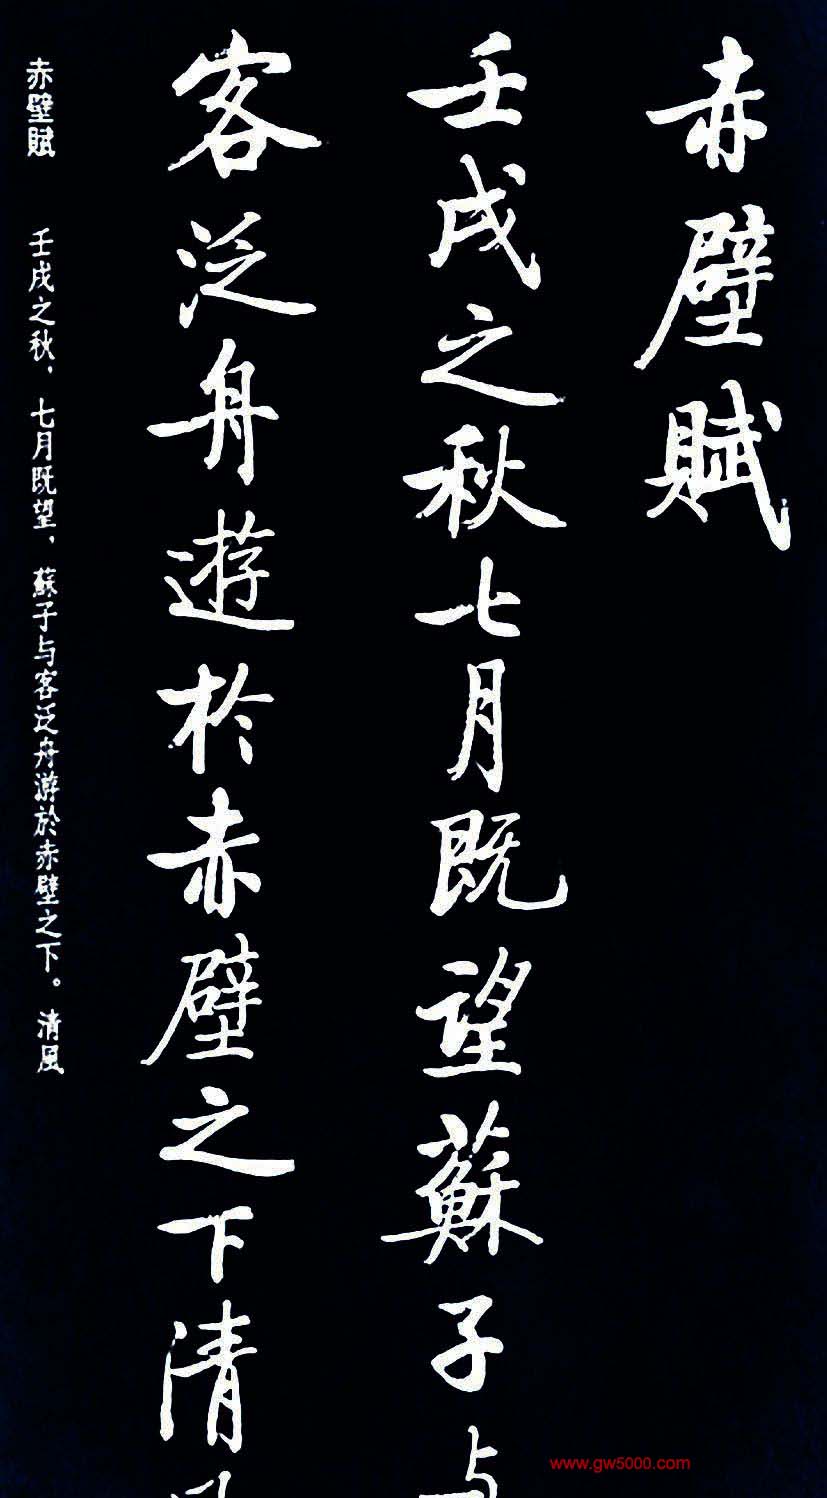 赤壁賦
壬戌之秋七月既望蘇子与
客泛舟遊於赤壁之下清風
赤壁賦　壬戌之秋，七月既望，蘇子与客泛舟游於赤壁之下。清風
www.gw5000.com